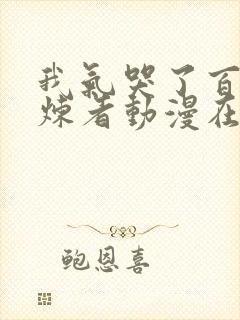 我氣哭了百
煉者動漫在
鮑恩喜